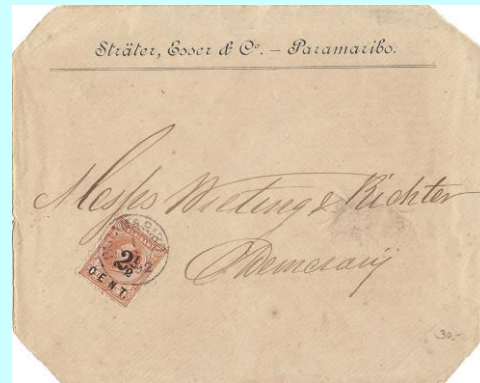 Sträter, Esser & Co. – Paramaribo.
Messrs Wieting & Richter
Demerary
2½
CENT.
30.-